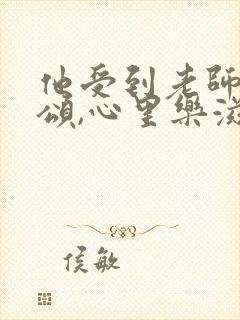 他受到老師
頌,心里樂滋
侯敏